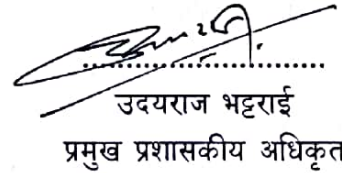 उदयराज भट्टराई
प्रमुख प्रशासकीय अधिकृत